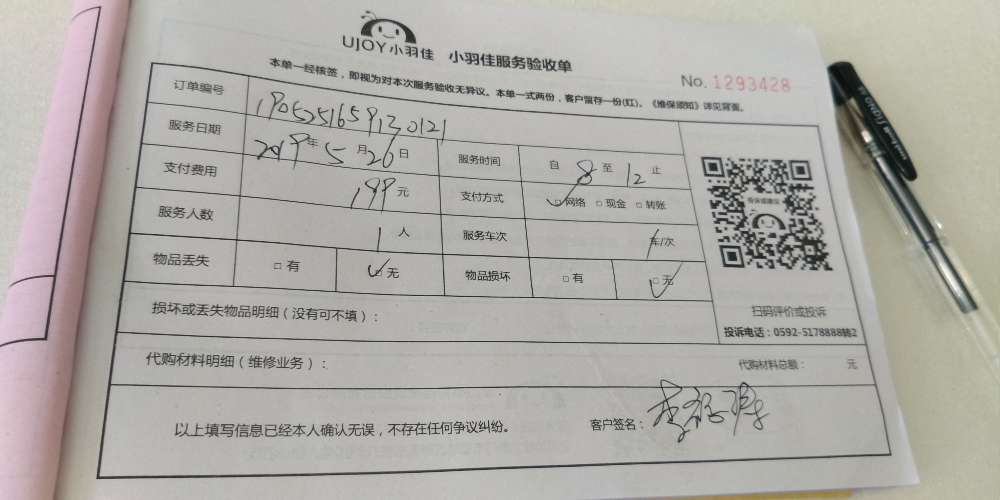 UJOY小羽佳 小羽佳服务验收单
No. 1293428
本单一经核签，即视为对本次服务验收无异议。本单一式两份，客户留存一份(红)。《维保须知》详见背面。
订单编号 1905251659130121
服务日期 2019年5月26日 服务时间 自 8 至 12 止
支付费用 199元 支付方式 ☑网络 □现金 □转账
服务人数 1人 服务车次 车/次
物品丢失 □有 ☑无 物品损坏 □有 ☑无
投诉或建议
扫码评价或投诉
投诉电话：0592-5178888转2
损坏或丢失物品明细（没有可不填）：
代购材料明细（维修业务）： 代购材料总额： 元
以上填写信息已经本人确认无误，不存在任何争议纠纷。 客户签名：